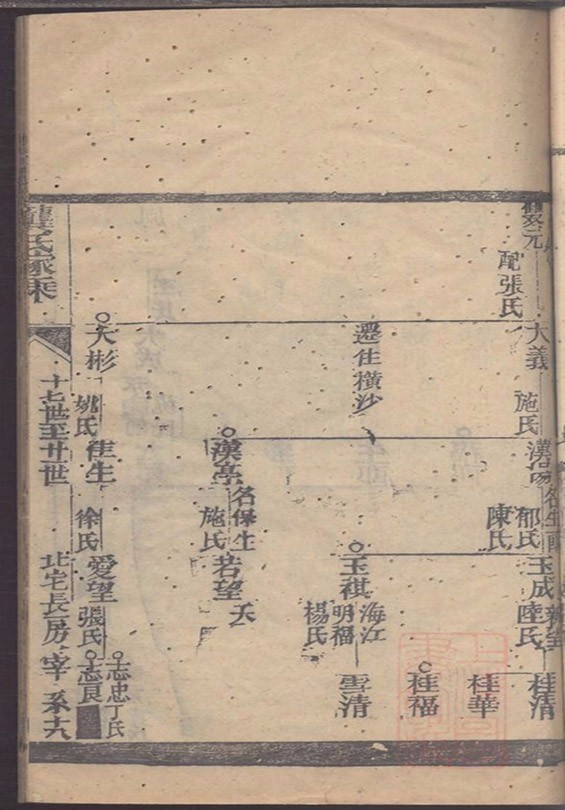 雙元
配張氏
大義
施氏
遷住橫沙
大彬
姚氏
漢
郁氏
陳氏
漢亭
名保生
施氏
佳生
徐氏
玉成
陸氏
玉祺
海江
明福
楊氏
若望
夭
愛望
張氏
桂清
桂華
桂福
雪清
志忠
丁氏
志良
龔氏家乘
十七世至廿一世
北宅長房
宰
系六